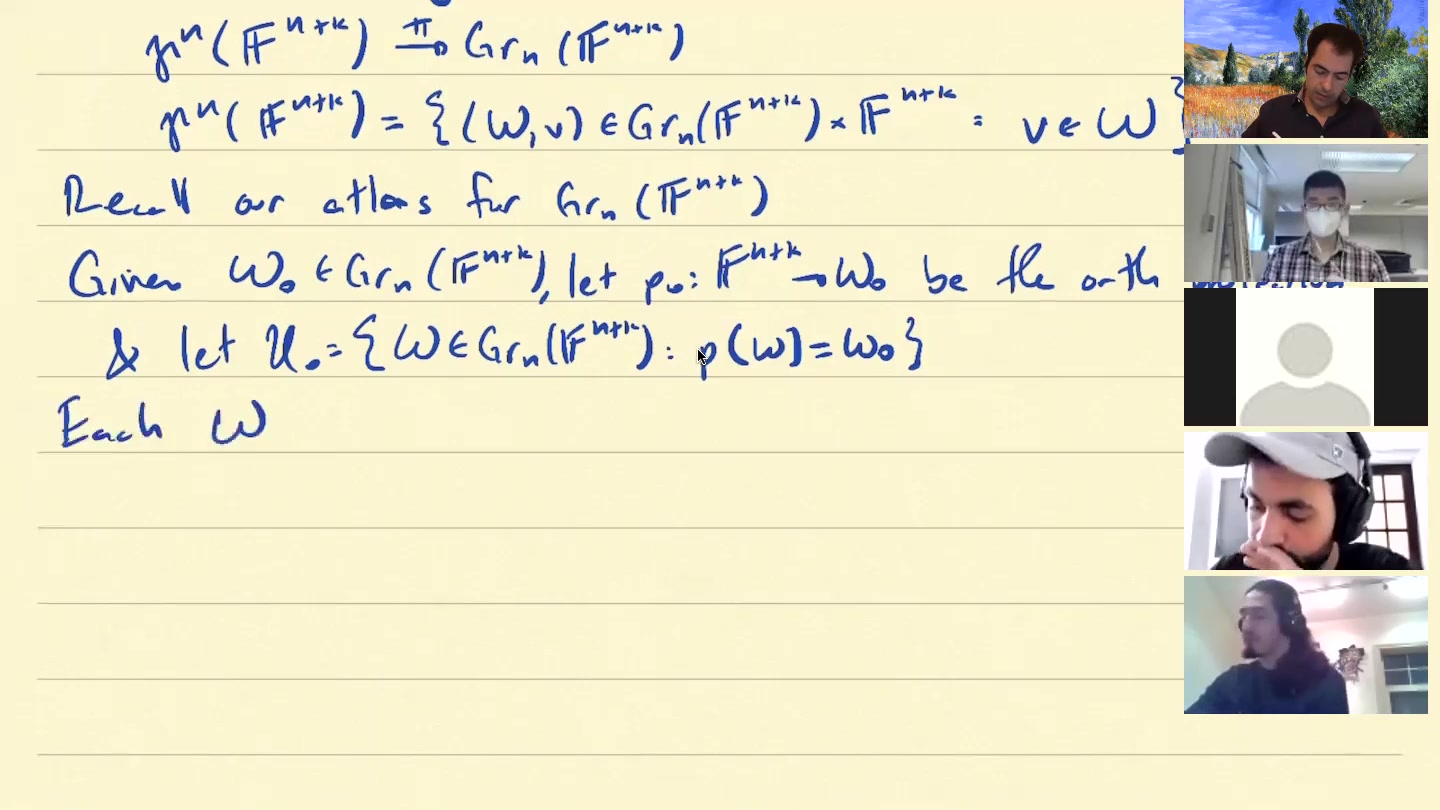 γⁿ(𝔽ⁿ⁺ᵏ) —π→ Grₙ(𝔽ⁿ⁺ᵏ)
γⁿ(𝔽ⁿ⁺ᵏ) = {(W,v) ∈ Grₙ(𝔽ⁿ⁺ᵏ) × 𝔽ⁿ⁺ᵏ : v ∈ W}
Recall our atlas for Grₙ(𝔽ⁿ⁺ᵏ)
Given W₀ ∈ Grₙ(𝔽ⁿ⁺ᵏ), let p₀: 𝔽ⁿ⁺ᵏ → W₀ be the orth
& let U₀ = {W ∈ Grₙ(𝔽ⁿ⁺ᵏ) : p(W) = W₀}
Each W